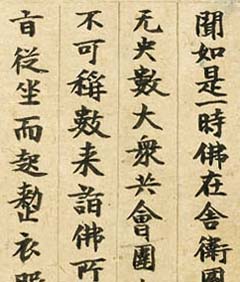 聞如是一時佛在舍衛國
无央數大衆共會圍
不可稱數来詣佛所
盲從坐而起整衣服